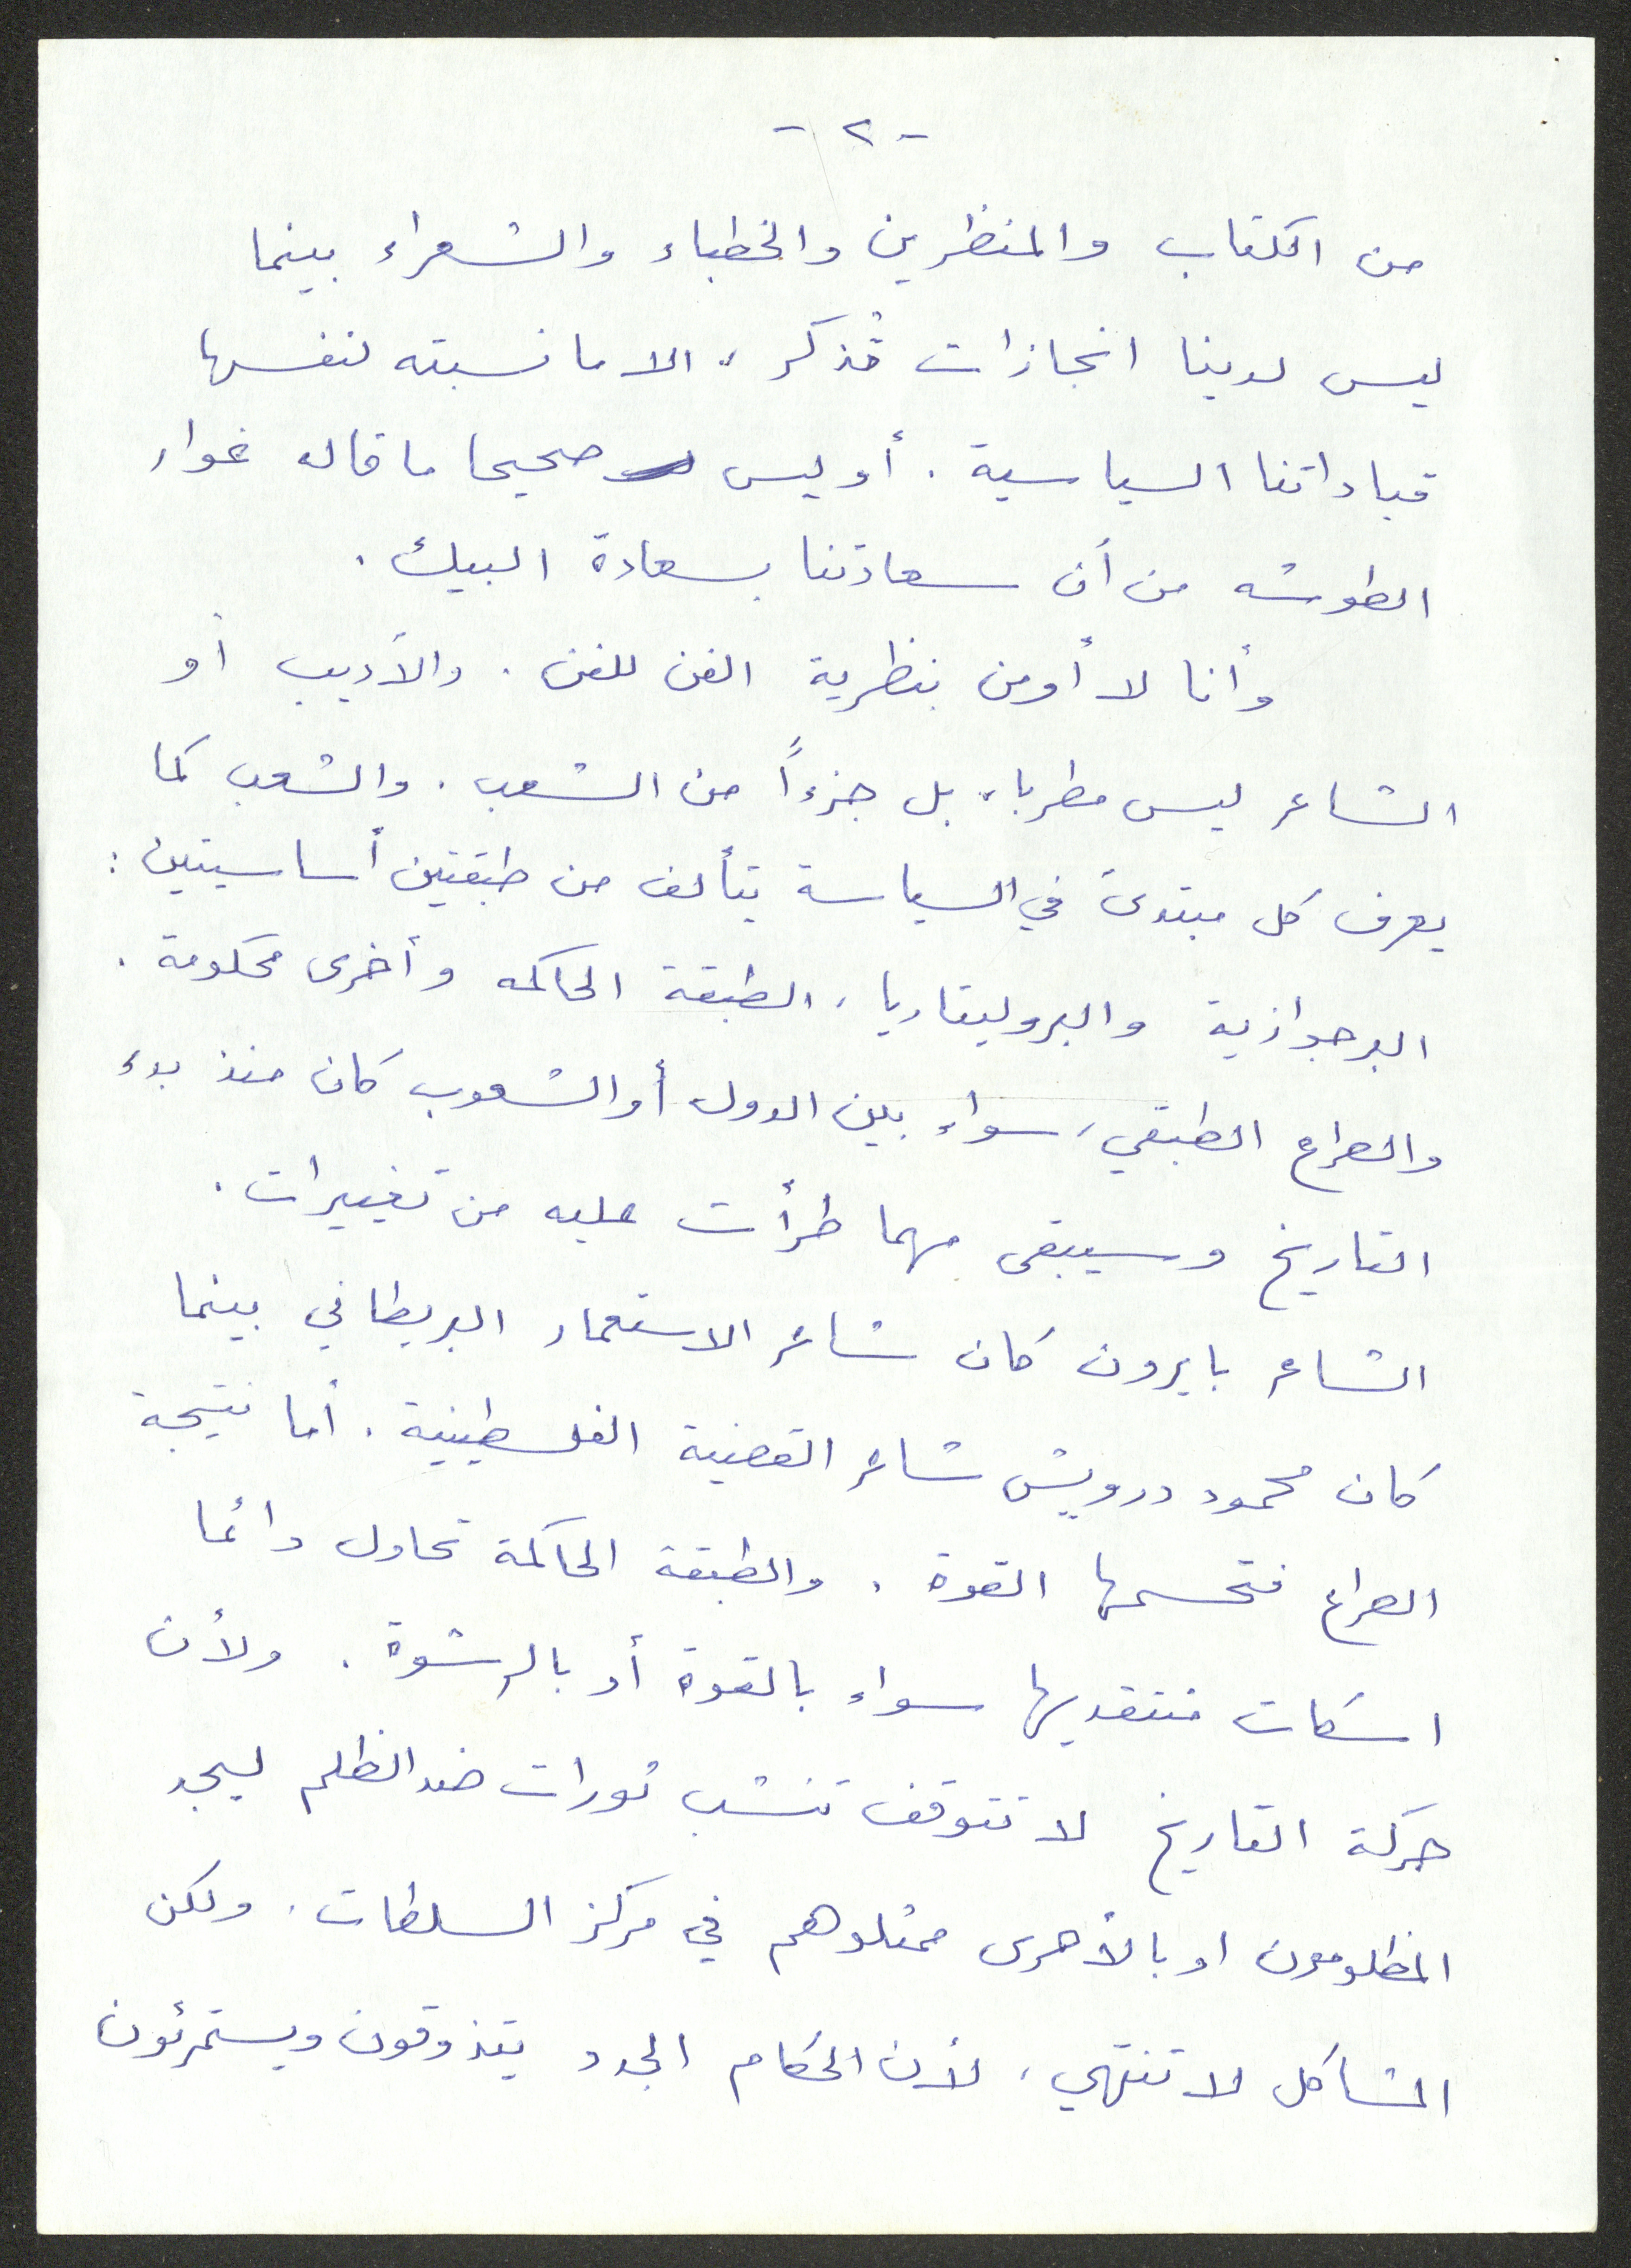 - ٢ -
من الكتاب والمنظرين والخطباء والشعراء بينما
ليس لدينا انجازات تُذكر، الا ما نسبته لنفسها
قياداتنا السياسية. أو ليس صحيحا ما قاله غوار
الطوشه من أن سعادتنا بسعادة البيك.
وأنا لا أومن بنظرية الفن للفن. والأديب أو
الشاعر ليس مطربا، بل جزءاً من الشعب. والشعب كما
يعرف كل مبتدئ في السياسة يتألف من طبقتين أساسيتين:
البرجوازية والبروليتاريا، الطبقة الحاكمه وأخرى محكومة.
والصراع الطبقي، سواء بين الدول أو الشعوب كان منذ بدء
التاريخ وسيبقى مهما طرأت عليه من تغييرات.
الشاعر بايرون كان شاعر الاستعمار البريطاني بينما
كان محمود درويش شاعر القضية الفلسطينية. أما نتيجة
الصراع فتحسمها القوة. والطبقة الحاكمة تحاول دائما
اسكات منتقديها سواء بالقوة أو بالرشوة. ولأن
حركة التاريخ لا تتوقف تنشب ثورات ضد الظلم ليجد
المظلومون او بالأحرى ممثلوهم في مركز السلطات. ولكن
المشاكل لا تنتهي، لأن الحكام الجدد يتذوقون ويستمرئون